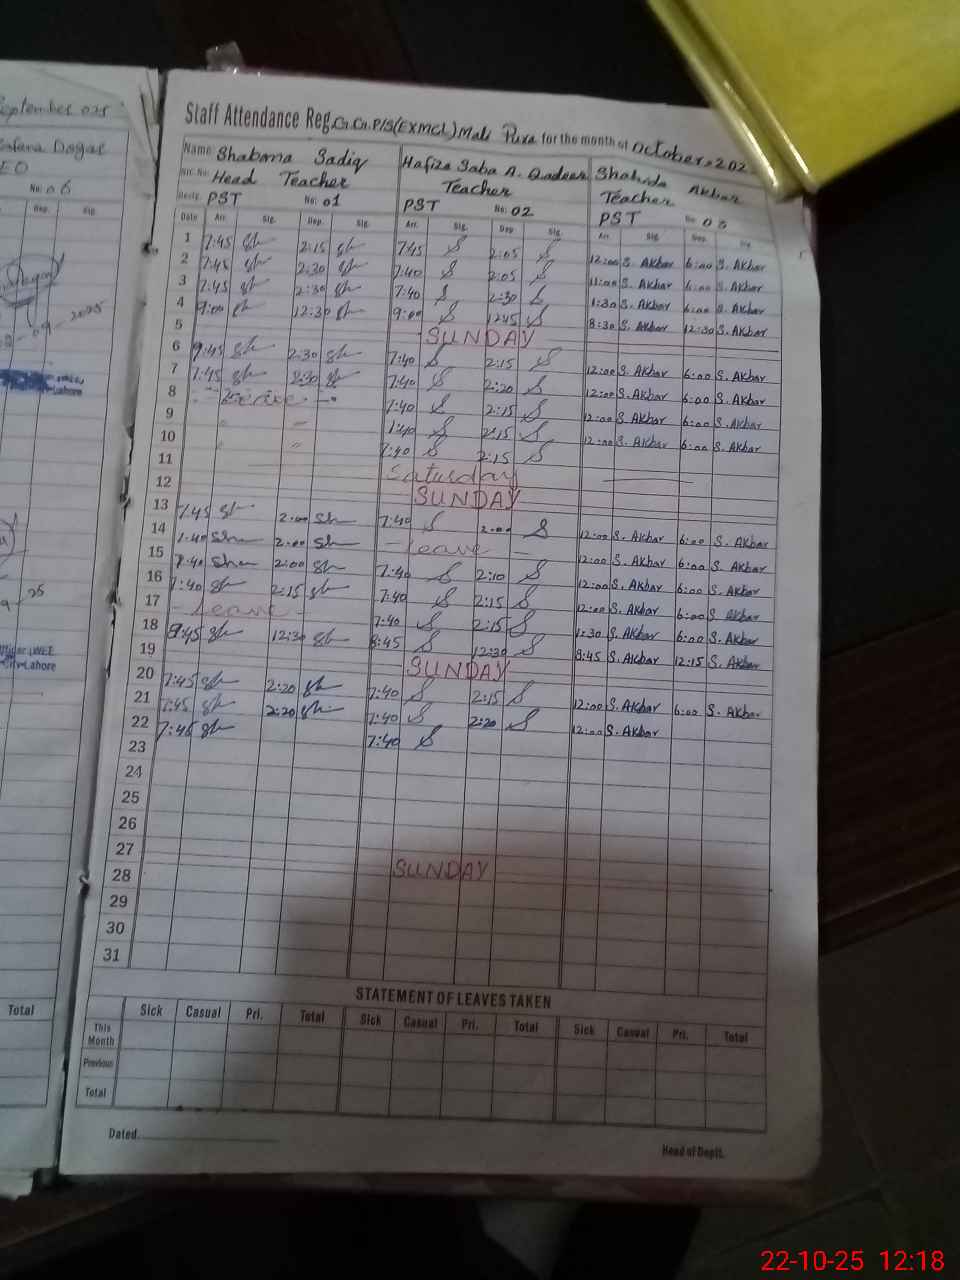 September 025
No: 06
Dep. Sig.
Total
Staff Attendance Reg. G.G.P/S(EXMCL) Mali Pura for the month of October. 202
Name Shabana Sadiq Hafiza Saba A. Qadeer Shahida Akbar
Head Teacher Teacher Teacher
Desig. PST No: 01 PST No: 02 PST No 03
Date Arr. Sig. Dep. Sig. Arr. Sig. Dep Sig. Arr. Sig. Dep. Sig
1 7:45 2:15 7:45 2:05 12:00 S. Akbar 6:00 S. Akbar
2 7:45 2:30 7:40 2:05 11:00 S. Akbar 6:00 S. Akbar
3 7:45 2:30 7:40 2:30 1:30 S. Akbar 6:00 S. Akbar
4 9:00 12:30 9:00 1245 8:30 S. Akbar 12:30 S. Akbar
5 SUNDAY
6 2:30 7:40 2:15 12:00 S. Akbar 6:00 S. Akbar
7 7:45 2:30 7:40 2:20 12:00 S. Akbar 6:00 S. Akbar
8 - Leave - 7:40 2:15 12:00 S. Akbar 6:00 S. Akbar
9 " - 7:40 2:15 12:00 S. Akbar 6:00 S. Akbar
10 " 7:40 2:15
11 Saturday
12 SUNDAY
13 7:45 2:00 7:40 2:00 12:00 S. Akbar 6:00 S. Akbar
14 7:40 2:00 - Leave - 12:00 S. Akbar 6:00 S. Akbar
15 7:40 2:00 7:40 2:10 12:00 S. Akbar 6:00 S. Akbar
16 7:40 2:15 7:40 2:15 12:00 S. Akbar 6:00 S. Akbar
17 - Leave - 7:40 2:15 1:30 S. Akbar 6:00 S. Akbar
18 12:30 8:45 12:30 8:45 S. Akbar 12:15 S. Akbar
19 SUNDAY
20 7:45 2:20 7:40 2:15 12:00 S. Akbar 6:00 S. Akbar
21 7:45 2:20 7:40 2:20 12:00 S. Akbar
22 7:45 7:40
23
24
25
26
27
SUNDAY
28
29
30
31
STATEMENT OF LEAVES TAKEN
Sick Casual Pri. Total Sick Casual Pri. Total Sick Casual Pri. Total
This Month
Previous
Total
Dated.
Head of Deptt.
22-10-25 12:18